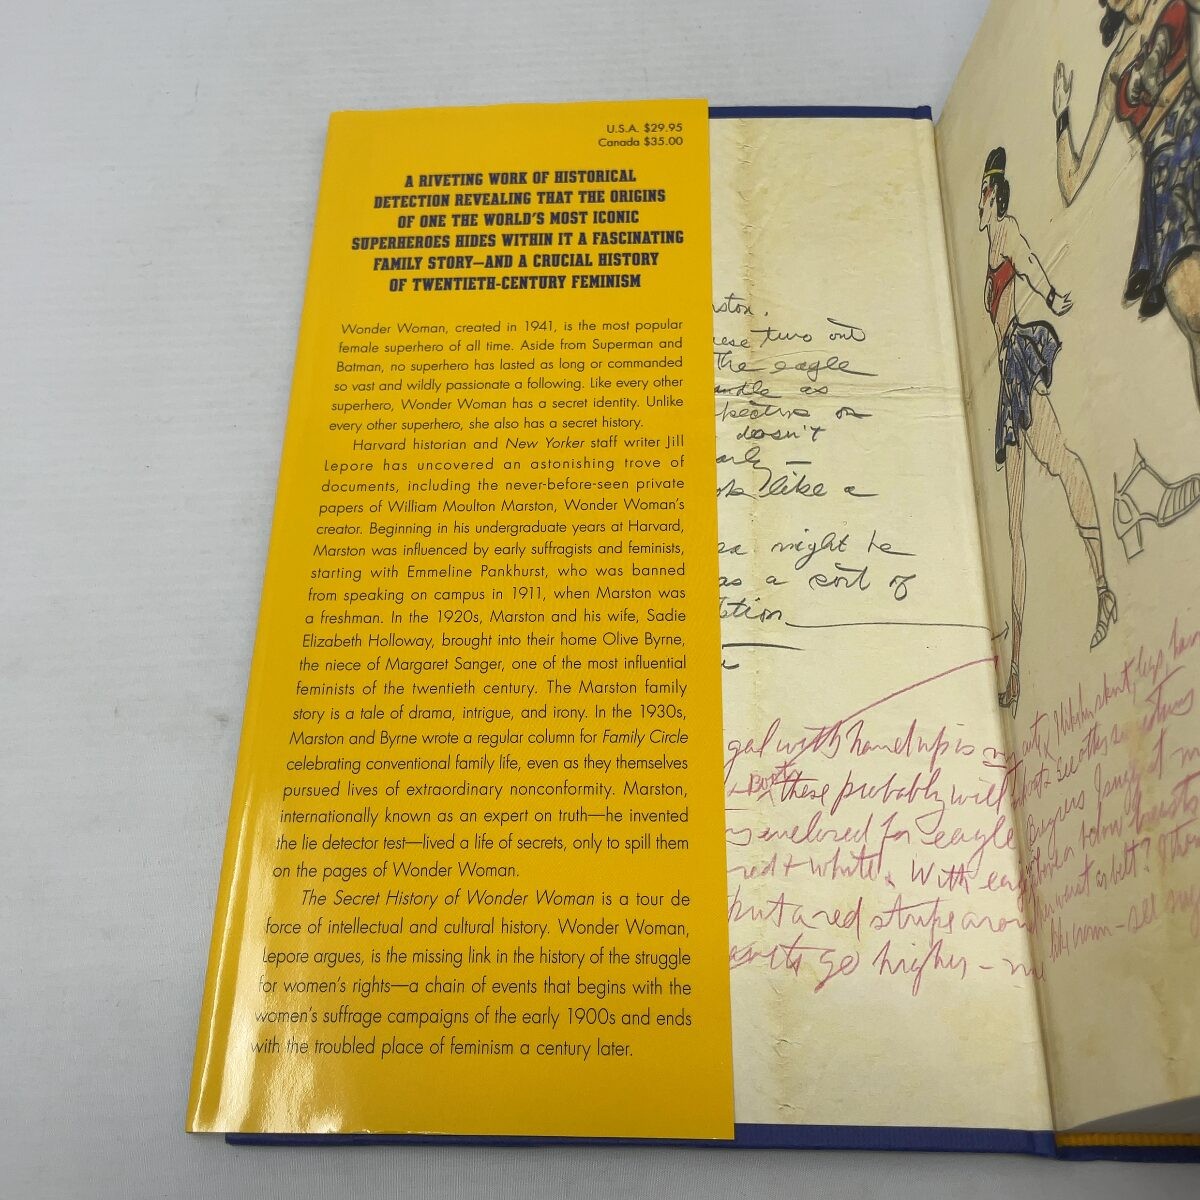 U.S.A. $29.95
Canada $35.00
A RIVETING WORK OF HISTORICAL
DETECTION REVEALING THAT THE ORIGINS
OF ONE THE WORLD'S MOST ICONIC
SUPERHEROES HIDES WITHIN IT A FASCINATING
FAMILY STORY—AND A CRUCIAL HISTORY
OF TWENTIETH-CENTURY FEMINISM
Wonder Woman, created in 1941, is the most popular
female superhero of all time. Aside from Superman and
Batman, no superhero has lasted as long or commanded
so vast and wildly passionate a following. Like every other
superhero, Wonder Woman has a secret identity. Unlike
every other superhero, she also has a secret history.
Harvard historian and New Yorker staff writer Jill
Lepore has uncovered an astonishing trove of
documents, including the never-before-seen private
papers of William Moulton Marston, Wonder Woman's
creator. Beginning in his undergraduate years at Harvard,
Marston was influenced by early suffragists and feminists,
starting with Emmeline Pankhurst, who was banned
from speaking on campus in 1911, when Marston was
a freshman. In the 1920s, Marston and his wife, Sadie
Elizabeth Holloway, brought into their home Olive Byrne,
the niece of Margaret Sanger, one of the most influential
feminists of the twentieth century. The Marston family
story is a tale of drama, intrigue, and irony. In the 1930s,
Marston and Byrne wrote a regular column for Family Circle
celebrating conventional family life, even as they themselves
pursued lives of extraordinary nonconformity. Marston,
internationally known as an expert on truth—he invented
the lie detector test—lived a life of secrets, only to spill them
on the pages of Wonder Woman.
The Secret History of Wonder Woman is a tour de
force of intellectual and cultural history. Wonder Woman,
Lepore argues, is the missing link in the history of the struggle
for women's rights—a chain of events that begins with the
women's suffrage campaigns of the early 1900s and ends
with the troubled place of feminism a century later.
two out
the eagle
as
on
doesn't
like a
might be
as a sort of
gal with hand up is
these probably will
enclosed for eagle
red + white. With
put a red stripe
go higher –